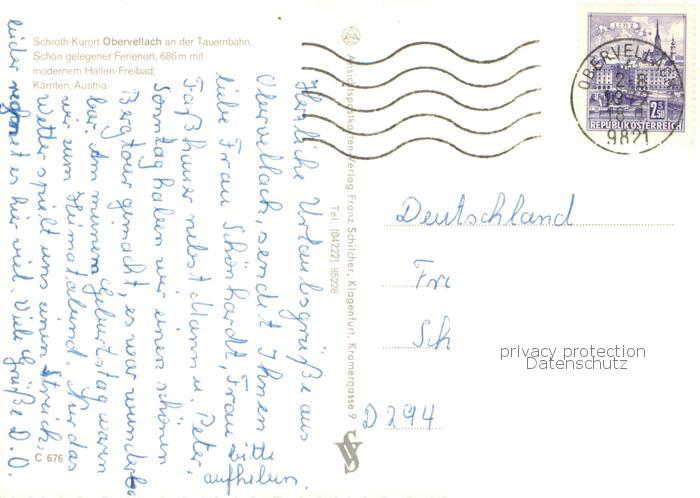 Schroth-Kurort Obervellach an der Tauernbahn.
Schön gelegener Ferienort, 686 m mit
modernem Hallen-Freibad;
Kärnten, Austria
Herzliche Urlaubsgrüße aus
Obervellach, sendet Ihnen
liebe Frau Schönhardt, Frau
Faßhauer nebst Mann u. Peter.
Sonntag haben wir einen schönen
Bergtour gemacht, es war wunder-
bar. Am meinem Geburtstag waren
wir zum Heimatabend. Nur das
Wetter spielt uns einen Streich,
leider regnet es hier viel. Viele Grüße D.O.
bitte
aufheben.
C 676
Ansichtspostkarten-Verlag Franz Schilcher, Klagenfurt, Kramergasse 9
Tel. (04222) 85228
LINZ
2.50
REPUBLIK ÖSTERREICH
OBERVELLACH
9821
Deutschland
Fr
Sch
D 294
privacy protection
Datenschutz